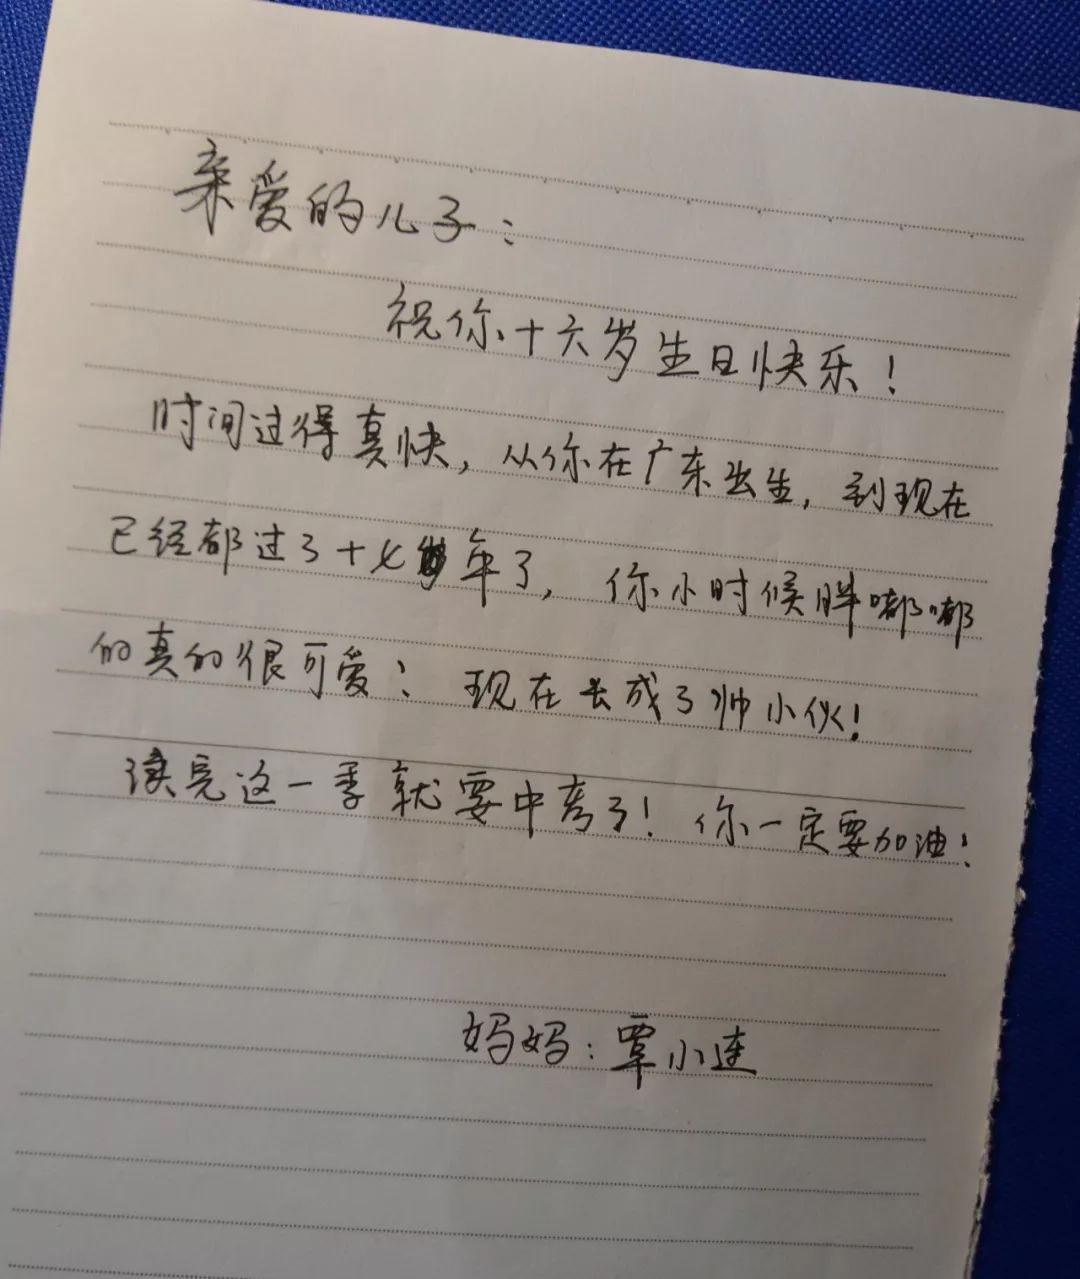 亲爱的儿子：
祝你十六岁生日快乐！
时间过得真快，从你在广东出生，到现在
已经都过了十七年了，你小时候胖嘟嘟
的真的很可爱！现在长成了帅小伙！
读完这一季就要中考了！你一定要加油！
妈妈：覃小连